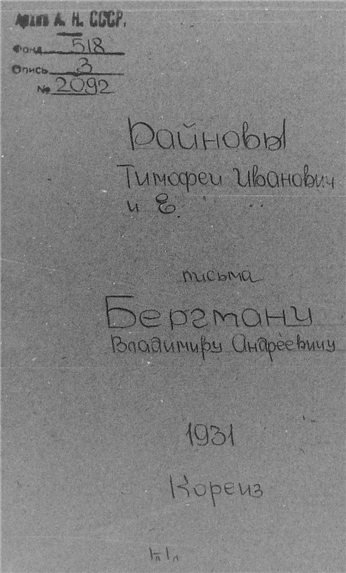 Архив А. Н. СССР.
Фонд 518
Опись 3
№ 2092
Райновы
Тимофей Иванович
и Е.
письма
Бергману
Владимиру Андреевичу
1931
Кореиз